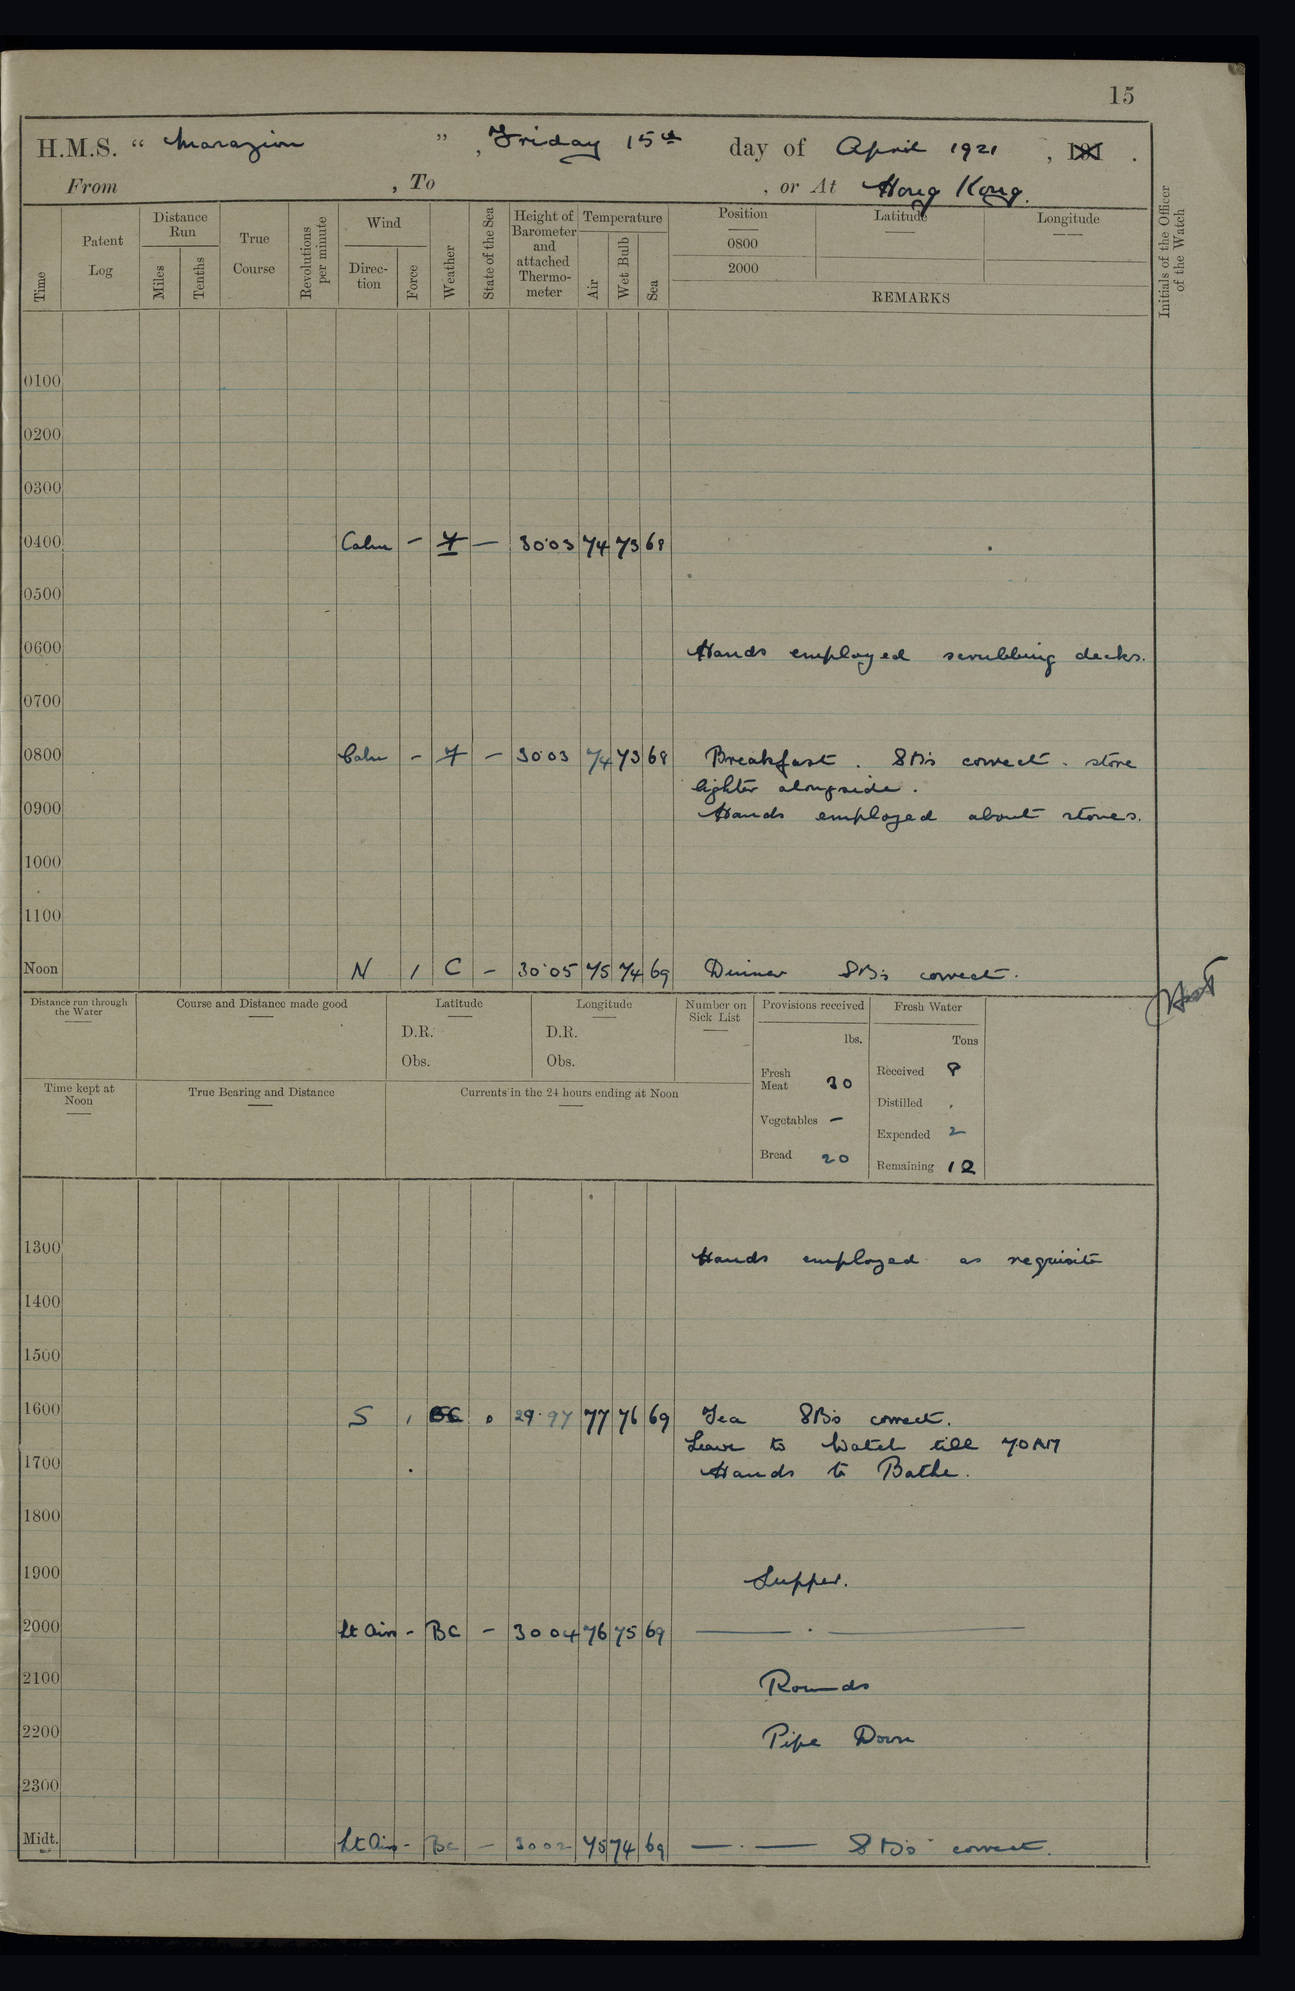 15
H.M.S. “ Marazion ” , Friday 15th day of April 1921 , 191 .
From , To , or At Hong Kong.
Time
Patent Log
Distance Run
Miles
Tenths
True Course
Revolutions per minute
Wind
Direc-tion
Force
Weather
State of the Sea
Height of Barometer and attached Thermo-meter
Temperature
Air
Wet Bulb
Sea
Position
0800
2000
Latitude
Longitude
REMARKS
Initials of the Officer of the Watch
0100
0200
0300
0400 Calm - f - 30·03 74 73 68
0500
0600 Hands employed scrubbing decks.
0700
0800 Calm - f - 30·03 74 73 68 Breakfast. SBs correct. store
lighter alongside.
0900 Hands employed about stores.
1000
1100
Noon N 1 C - 30·05 75 74 69 Dinner SBs correct.
Distance run through the Water
Course and Distance made good
Latitude
D.R.
Obs.
Longitude
D.R.
Obs.
Number on Sick List
Provisions received
lbs.
Fresh Meat 30
Vegetables -
Bread 20
Fresh Water
Tons
Received 8
Distilled .
Expended 2
Remaining 12
Time kept at Noon
True Bearing and Distance
Currents in the 24 hours ending at Noon
1300 Hands employed as requisite
1400
1500
1600 S 1 BC 0 29·97 77 76 69 Tea SBs correct.
Leave to Watch till 7.0 AM
1700 Hands to Bathe.
1800
1900 Supper.
2000 Lt Airs - BC - 3004 76 75 69
2100 Rounds
2200 Pipe Down
2300
Midt. Lt Airs - BC - 3002 75 74 69 SBs correct.